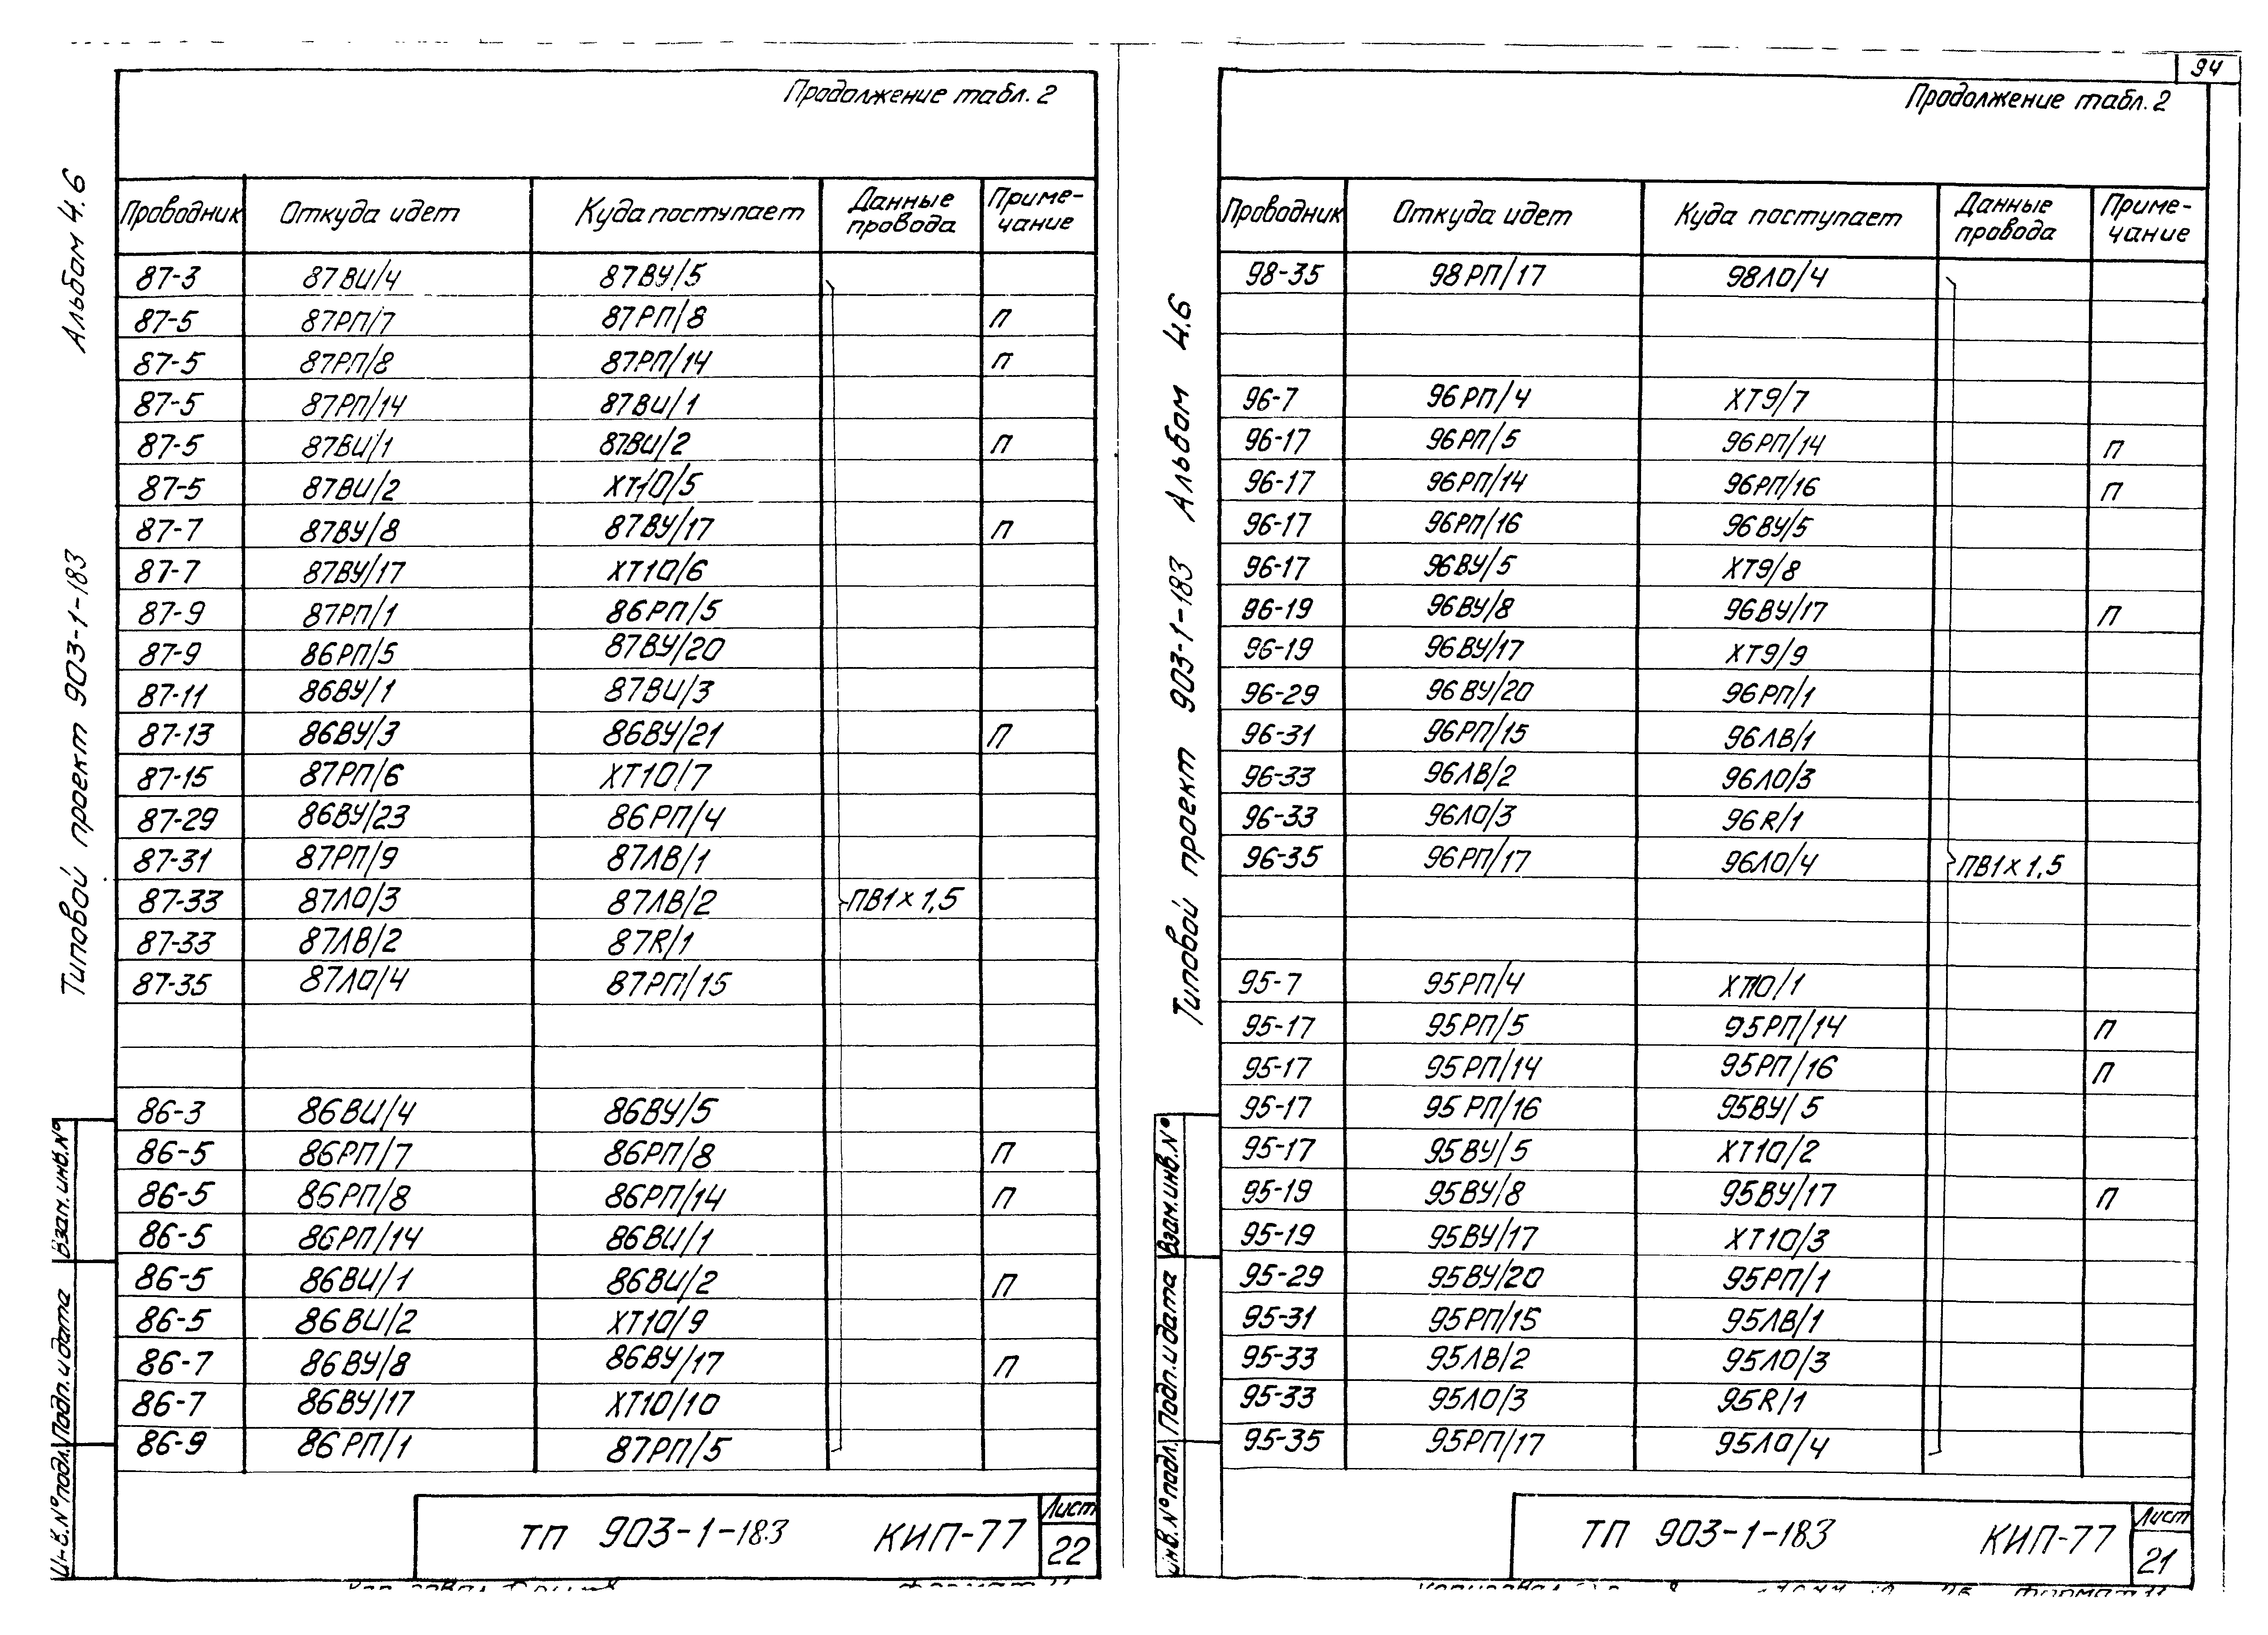 Продолжение табл. 2
Альбом 4.6
Типовой проект 903-1-183
Проводник Откуда идет Куда поступает Данные провода Приме-чание
87-3 87ВИ/4 87ВУ/5
87-5 87РП/7 87РП/8 П
87-5 87РП/8 87РП/14 П
87-5 87РП/14 87ВИ/1
87-5 87ВИ/1 87ВИ/2 П
87-5 87ВИ/2 ХТ10/5
87-7 87ВУ/8 87ВУ/17 П
87-7 87ВУ/17 ХТ10/6
87-9 87РП/1 86РП/5
87-9 86РП/5 87ВУ/20
87-11 86ВУ/1 87ВИ/3
87-13 86ВУ/3 86ВУ/21 П
87-15 87РП/6 ХТ10/7
87-29 86ВУ/23 86РП/4
87-31 87РП/9 87ЛВ/1
87-33 87ЛО/3 87ЛВ/2 ПВ1х1,5
87-33 87ЛВ/2 87R/1
87-35 87ЛО/4 87РП/15
86-3 86ВИ/4 86ВУ/5
86-5 86РП/7 86РП/8 П
86-5 86РП/8 86РП/14 П
86-5 86РП/14 86ВИ/1
86-5 86ВИ/1 86ВИ/2 П
86-5 86ВИ/2 ХТ10/9
86-7 86ВУ/8 86ВУ/17 П
86-7 86ВУ/17 ХТ10/10
86-9 86РП/1 87РП/5
Инв.№подл. Подп.и дата Взам.инв.№
ТП 903-1-183 КИП-77
Лист
22
94
Продолжение табл. 2
Типовой проект 903-1-183 Альбом 4.6
Проводник Откуда идет Куда поступает Данные провода Приме-чание
98-35 98РП/17 98ЛО/4
96-7 96РП/4 ХТ9/7
96-17 96РП/5 96РП/14 П
96-17 96РП/14 96РП/16 П
96-17 96РП/16 96ВУ/5
96-17 96ВУ/5 ХТ9/8
96-19 96ВУ/8 96ВУ/17 П
96-19 96ВУ/17 ХТ9/9
96-29 96ВУ/20 96РП/1
96-31 96РП/15 96ЛВ/1
96-33 96ЛВ/2 96ЛО/3
96-33 96ЛО/3 96R/1
96-35 96РП/17 96ЛО/4 ПВ1х1,5
95-7 95РП/4 ХТ10/1
95-17 95РП/5 95РП/14 П
95-17 95РП/14 95РП/16 П
95-17 95РП/16 95ВУ/5
95-17 95ВУ/5 ХТ10/2
95-19 95ВУ/8 95ВУ/17 П
95-19 95ВУ/17 ХТ10/3
95-29 95ВУ/20 95РП/1
95-31 95РП/15 95ЛВ/1
95-33 95ЛВ/2 95ЛО/3
95-33 95ЛО/3 95R/1
95-35 95РП/17 95ЛО/4
Инв.№подл. Подп.и дата Взам.инв.№
ТП 903-1-183 КИП-77
Лист
21